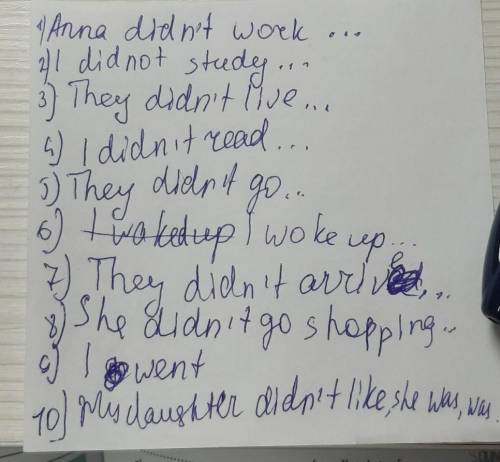 1) Anna didn't work ...
2) I did not study...
3) They didn't live...
4) I didn't read...
5) They didn't go...
6) I waked up I woke up...
7) They didn't arrive...
8) She didn't go shopping..
9) I went
10) My daughter didn't like, she was, was.